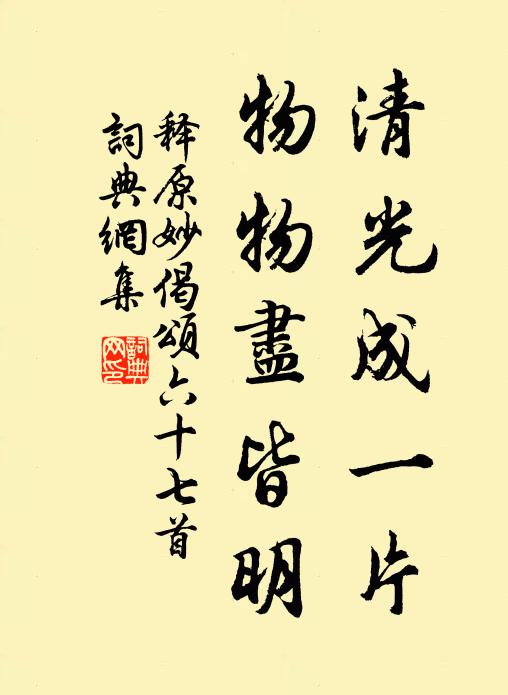 清光成一片
物物盡皆明
释原妙偈頌六十七首
詞典網集
詞典網印